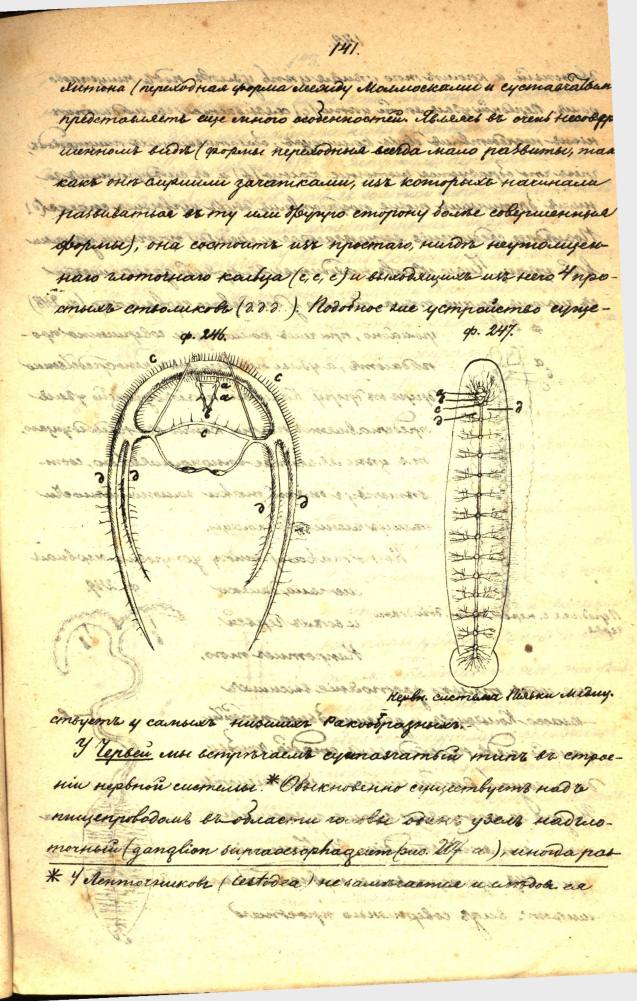 141.
Хитона (переходная форма между Моллюсками и суставчатыми
представляетъ еще много особенностей. Являясь въ очень несовер
шенномъ видѣ (формы переходныя всегда мало развиты, такъ
какъ онѣ служили зачатками, изъ которыхъ начинали
развиваться въ ту или другую сторону болѣе совершенныя
формы), она состоитъ изъ простаго, нигдѣ неутолщен-
наго глоточнаго кольца (c, c, c) и выходящихъ изъ него 4 про-
стыхъ стволиковъ (д.д.д.). Подобное же устройство суще-
ф. 246.
ф. 247.
c
c
a
a
b
c
д
д
д
д
c
д
д
Нервн. система Піявки Медиц.
ствуетъ у самыхъ низшихъ Ракообразныхъ.-
У Червей мы встрѣчаемъ суставчатый типъ въ строе-
ніи нервной системы.* Обыкновенно существуетъ надъ
пищепроводомъ въ области головы одинъ узелъ надгло-
точный (ganglion supraoesophageum рис. 247 a), иногда раз
* У Ленточниковъ (Cestodea) не замѣчается и слѣдовъ ея